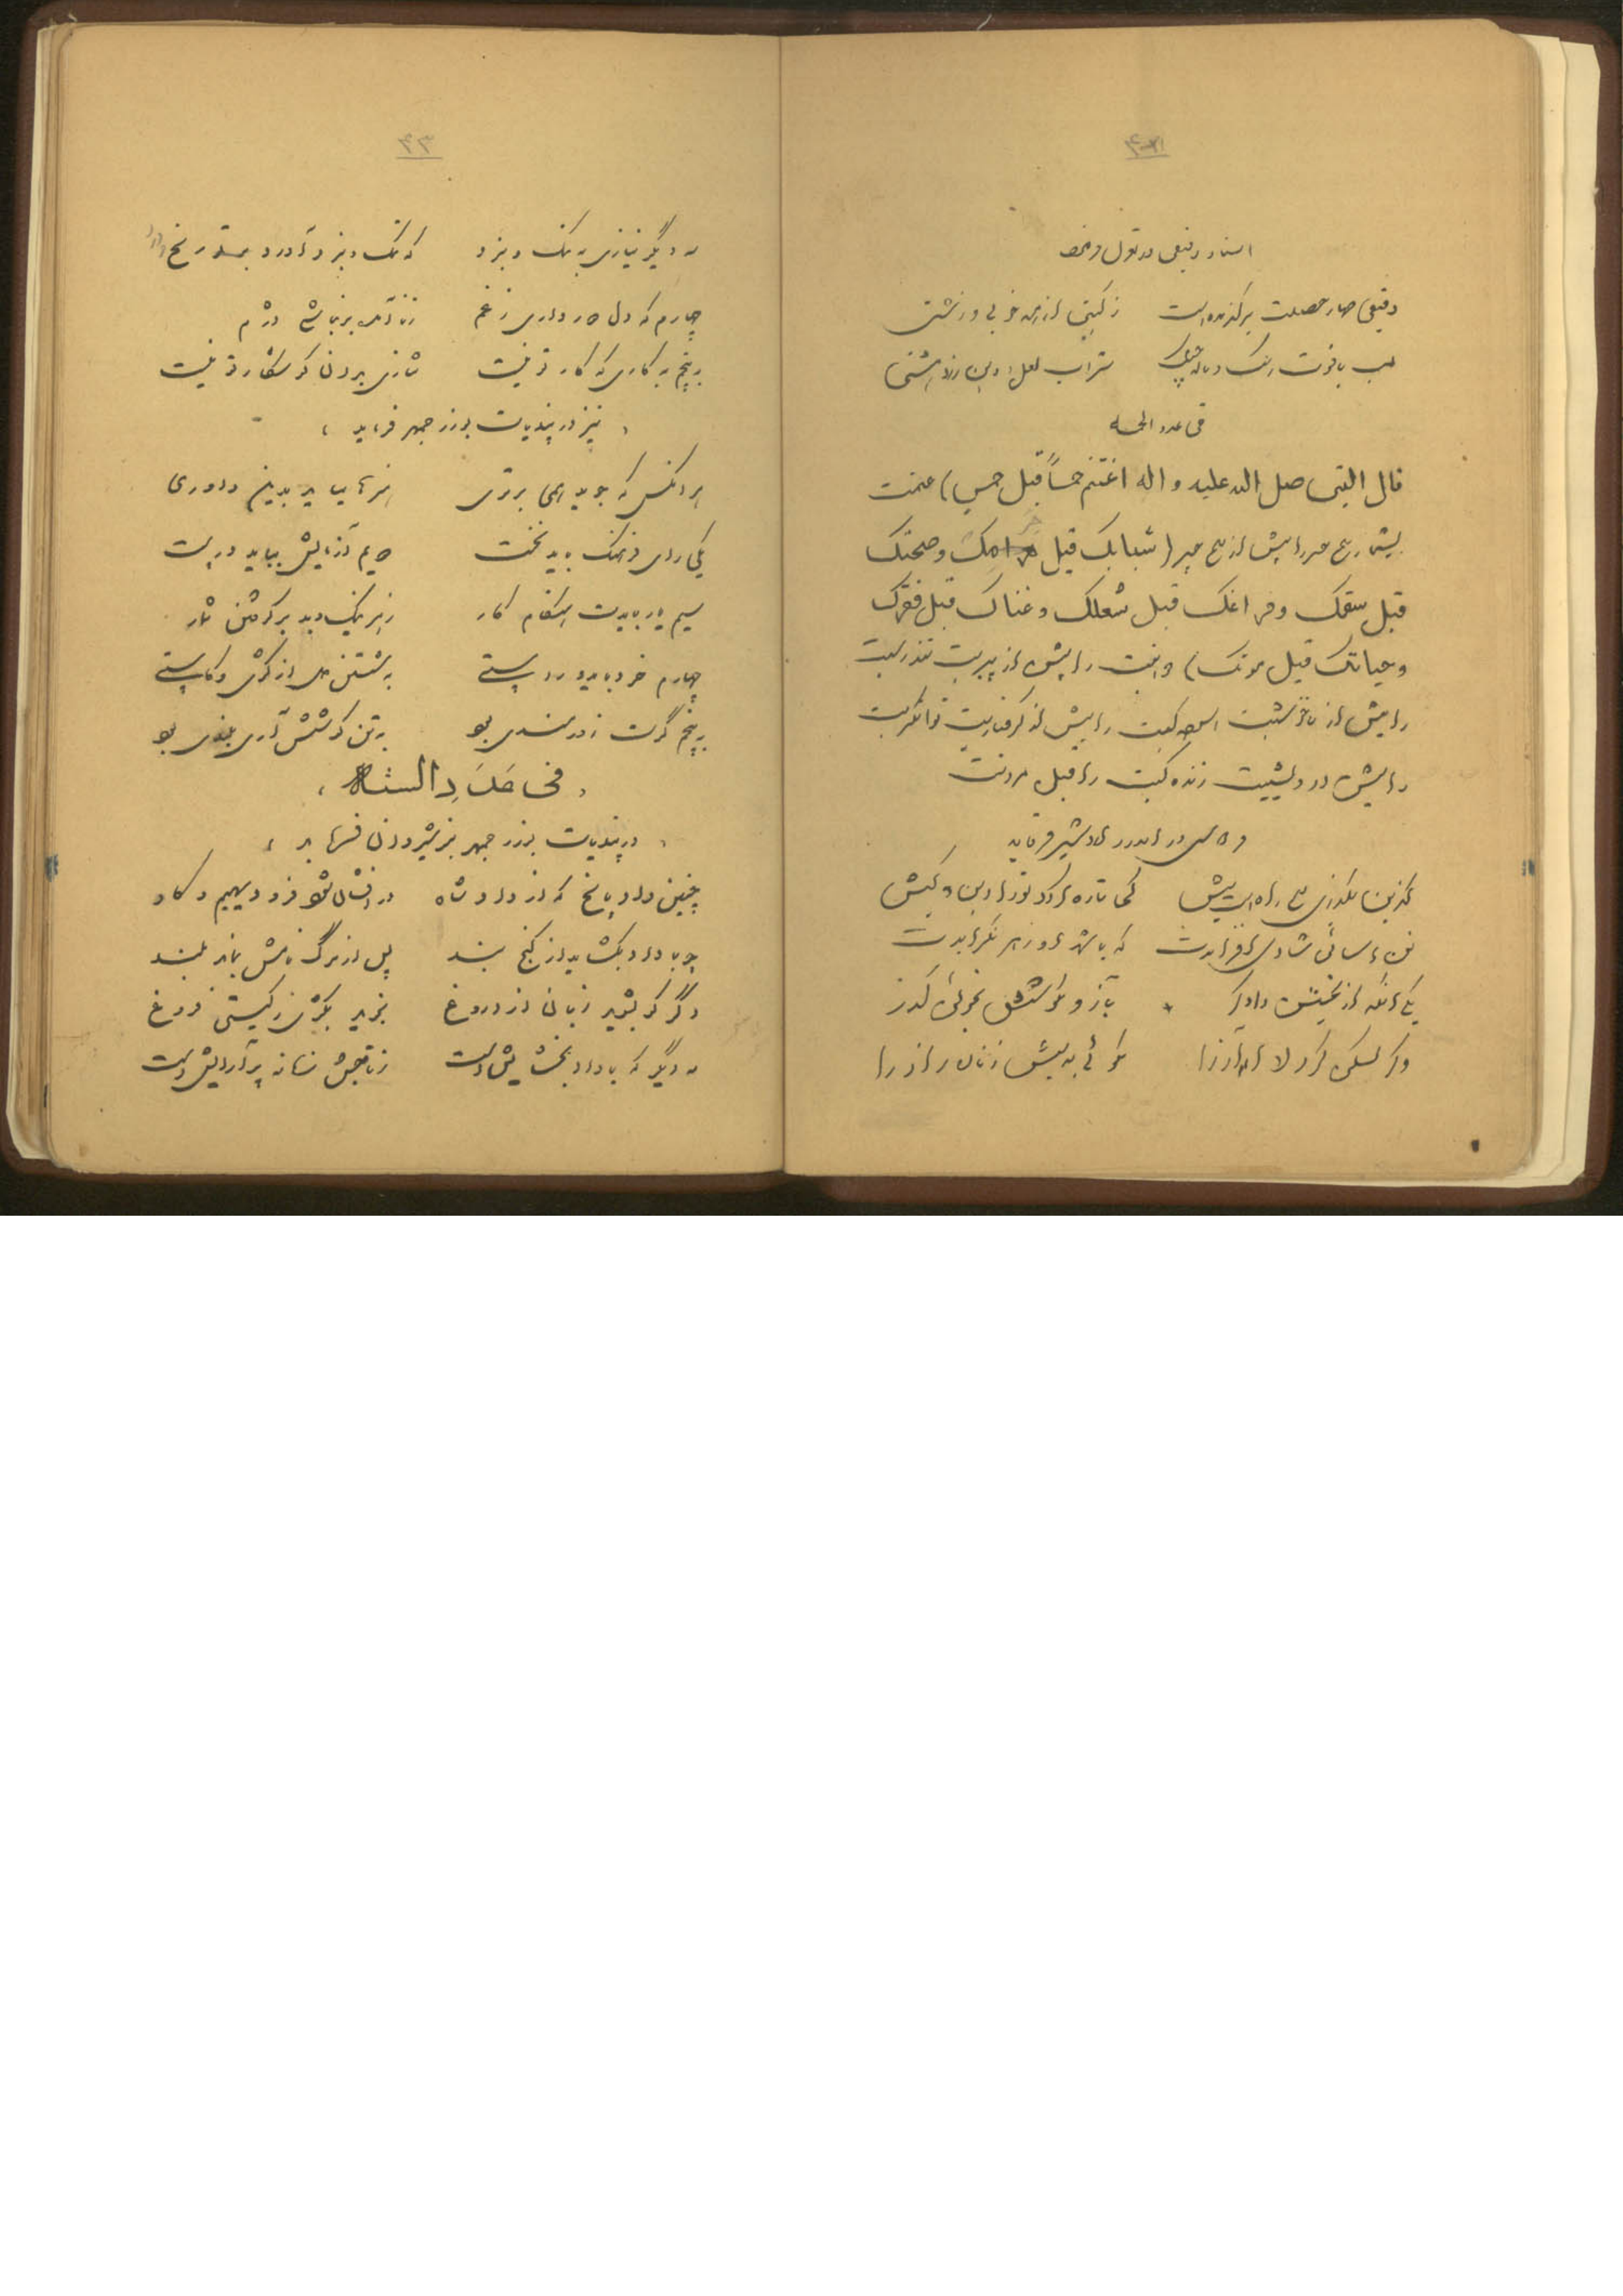 دقیقی چار خصلت برگزیده است زگیتی از همه خوبی و زشتی
لب یاقوت رنگ و ناله چنگ شراب لعل و دین زردهشتی
فی عدد الخمسه
قال النبی صلی الله علیه و اله اغتنم خمساً قبل خمس) غنیمت
بشمار پنج چیر را پیش از پنج چیر (شبابک قبل هرمک وصحتک
قبل سقمک و فراغک قبل شغلک و غناک قبل فقرک
وحیاتک قبل موتک) را پیش از پیریت تندرستیت
را پیش از را پیش از گرفتاریت توانگریت
را پیش از درویشیت زنده گیت را قبل مردنت
در اندرز اردشیر فرماید
پنج راه است پیش دین و کیش
تن آسانی شادی افزایدت که با شهد او زهر نگزایدت
یکی آنکه از بخشش دادگر به آز و بکوشش نجوئی گذر
وگر بشکنی گردن آز را نگوئی به پیش زنان راز را
۴۳
سه دیگر ننازی به ننگ و نبرد که ننگ و نبرد آورد رنج و درد
چهارم که دل دور داری ز غم ز ناآمده بد نباشی دژم
به پنجم به کاری که کار تو نیست نتازی بدان کو شکار تو نیست
، نیز در پندیات بوزرجمهر فرماید ،
هر آنکس که جوید همی برتری هنرها بباید بدین داوری
یکی رای و فرهنگ باید نخست دویم آزمایش بباید درست
سیم یار بایدت هنگام کار ز هر نیک و بد بر گرفتن شمار
چهارم خرد باید و راستی به شستن دل از کژی و کاستی
به پنجم گرت زورمندی بود به تن کوشش آری بلندی بود
، فی عَدَدِ السته ،
، در پندیات بوزرجمهر بنوشیروان فرماید ،
چنین داد پاسخ که از داد شاه درافشان شود فر و دیهیم و گاه
چو با داد بگشاید از گنج بند پس از مرگ نامش بماند بلند
دگر کو بشوید زبان از دروغ نجوید بکژی ز گیتی فروغ
سه دیگر که با داد و بخشایش است ز تاجش زمانه پر آرایش است